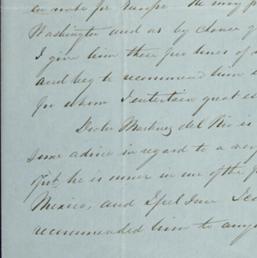 en route for Europe. He may p
Washington and as by chance of
I give him these few lines of
and beg to recommend him
for whom I entertain great es
Doctor Martinez del Rio is
some advice in regard to a very
he is owner in one of the f
Mexico, and I feel sure I co
recommended him to any